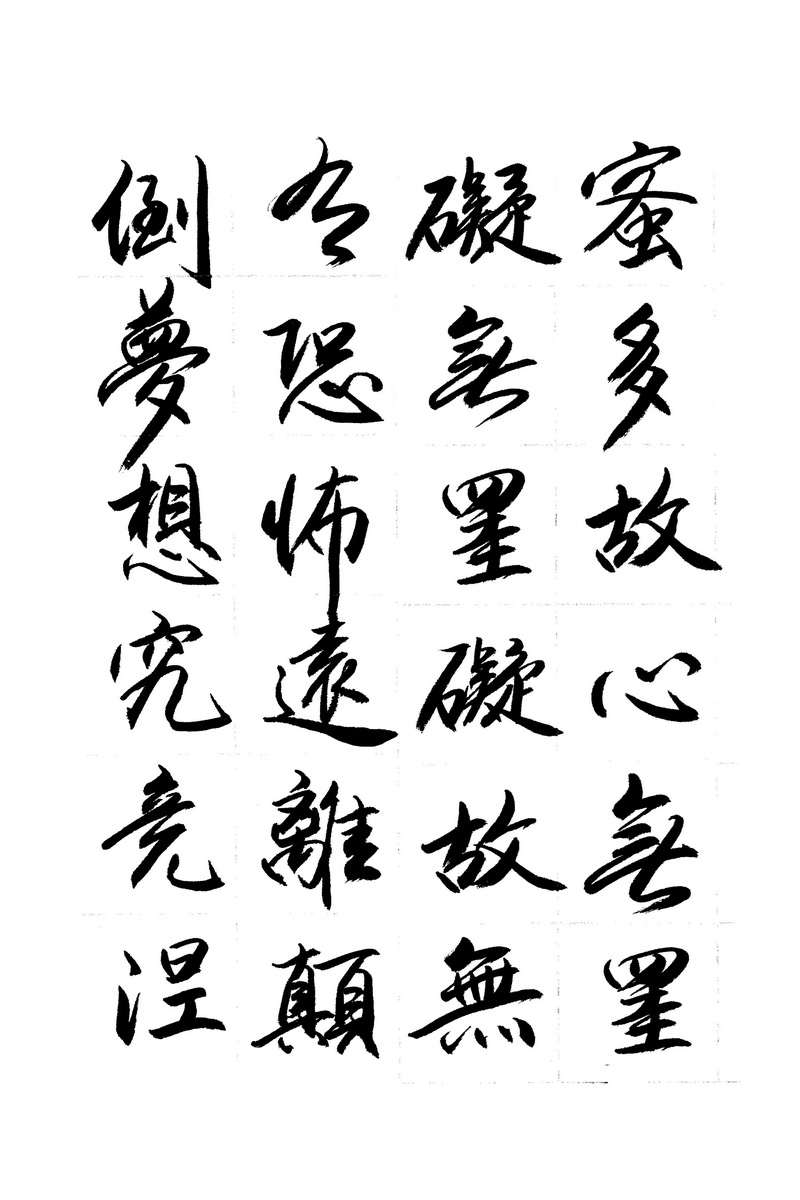 蜜多故心無罣
礙無罣礙故無
有恐怖遠離顛
倒夢想究竟涅